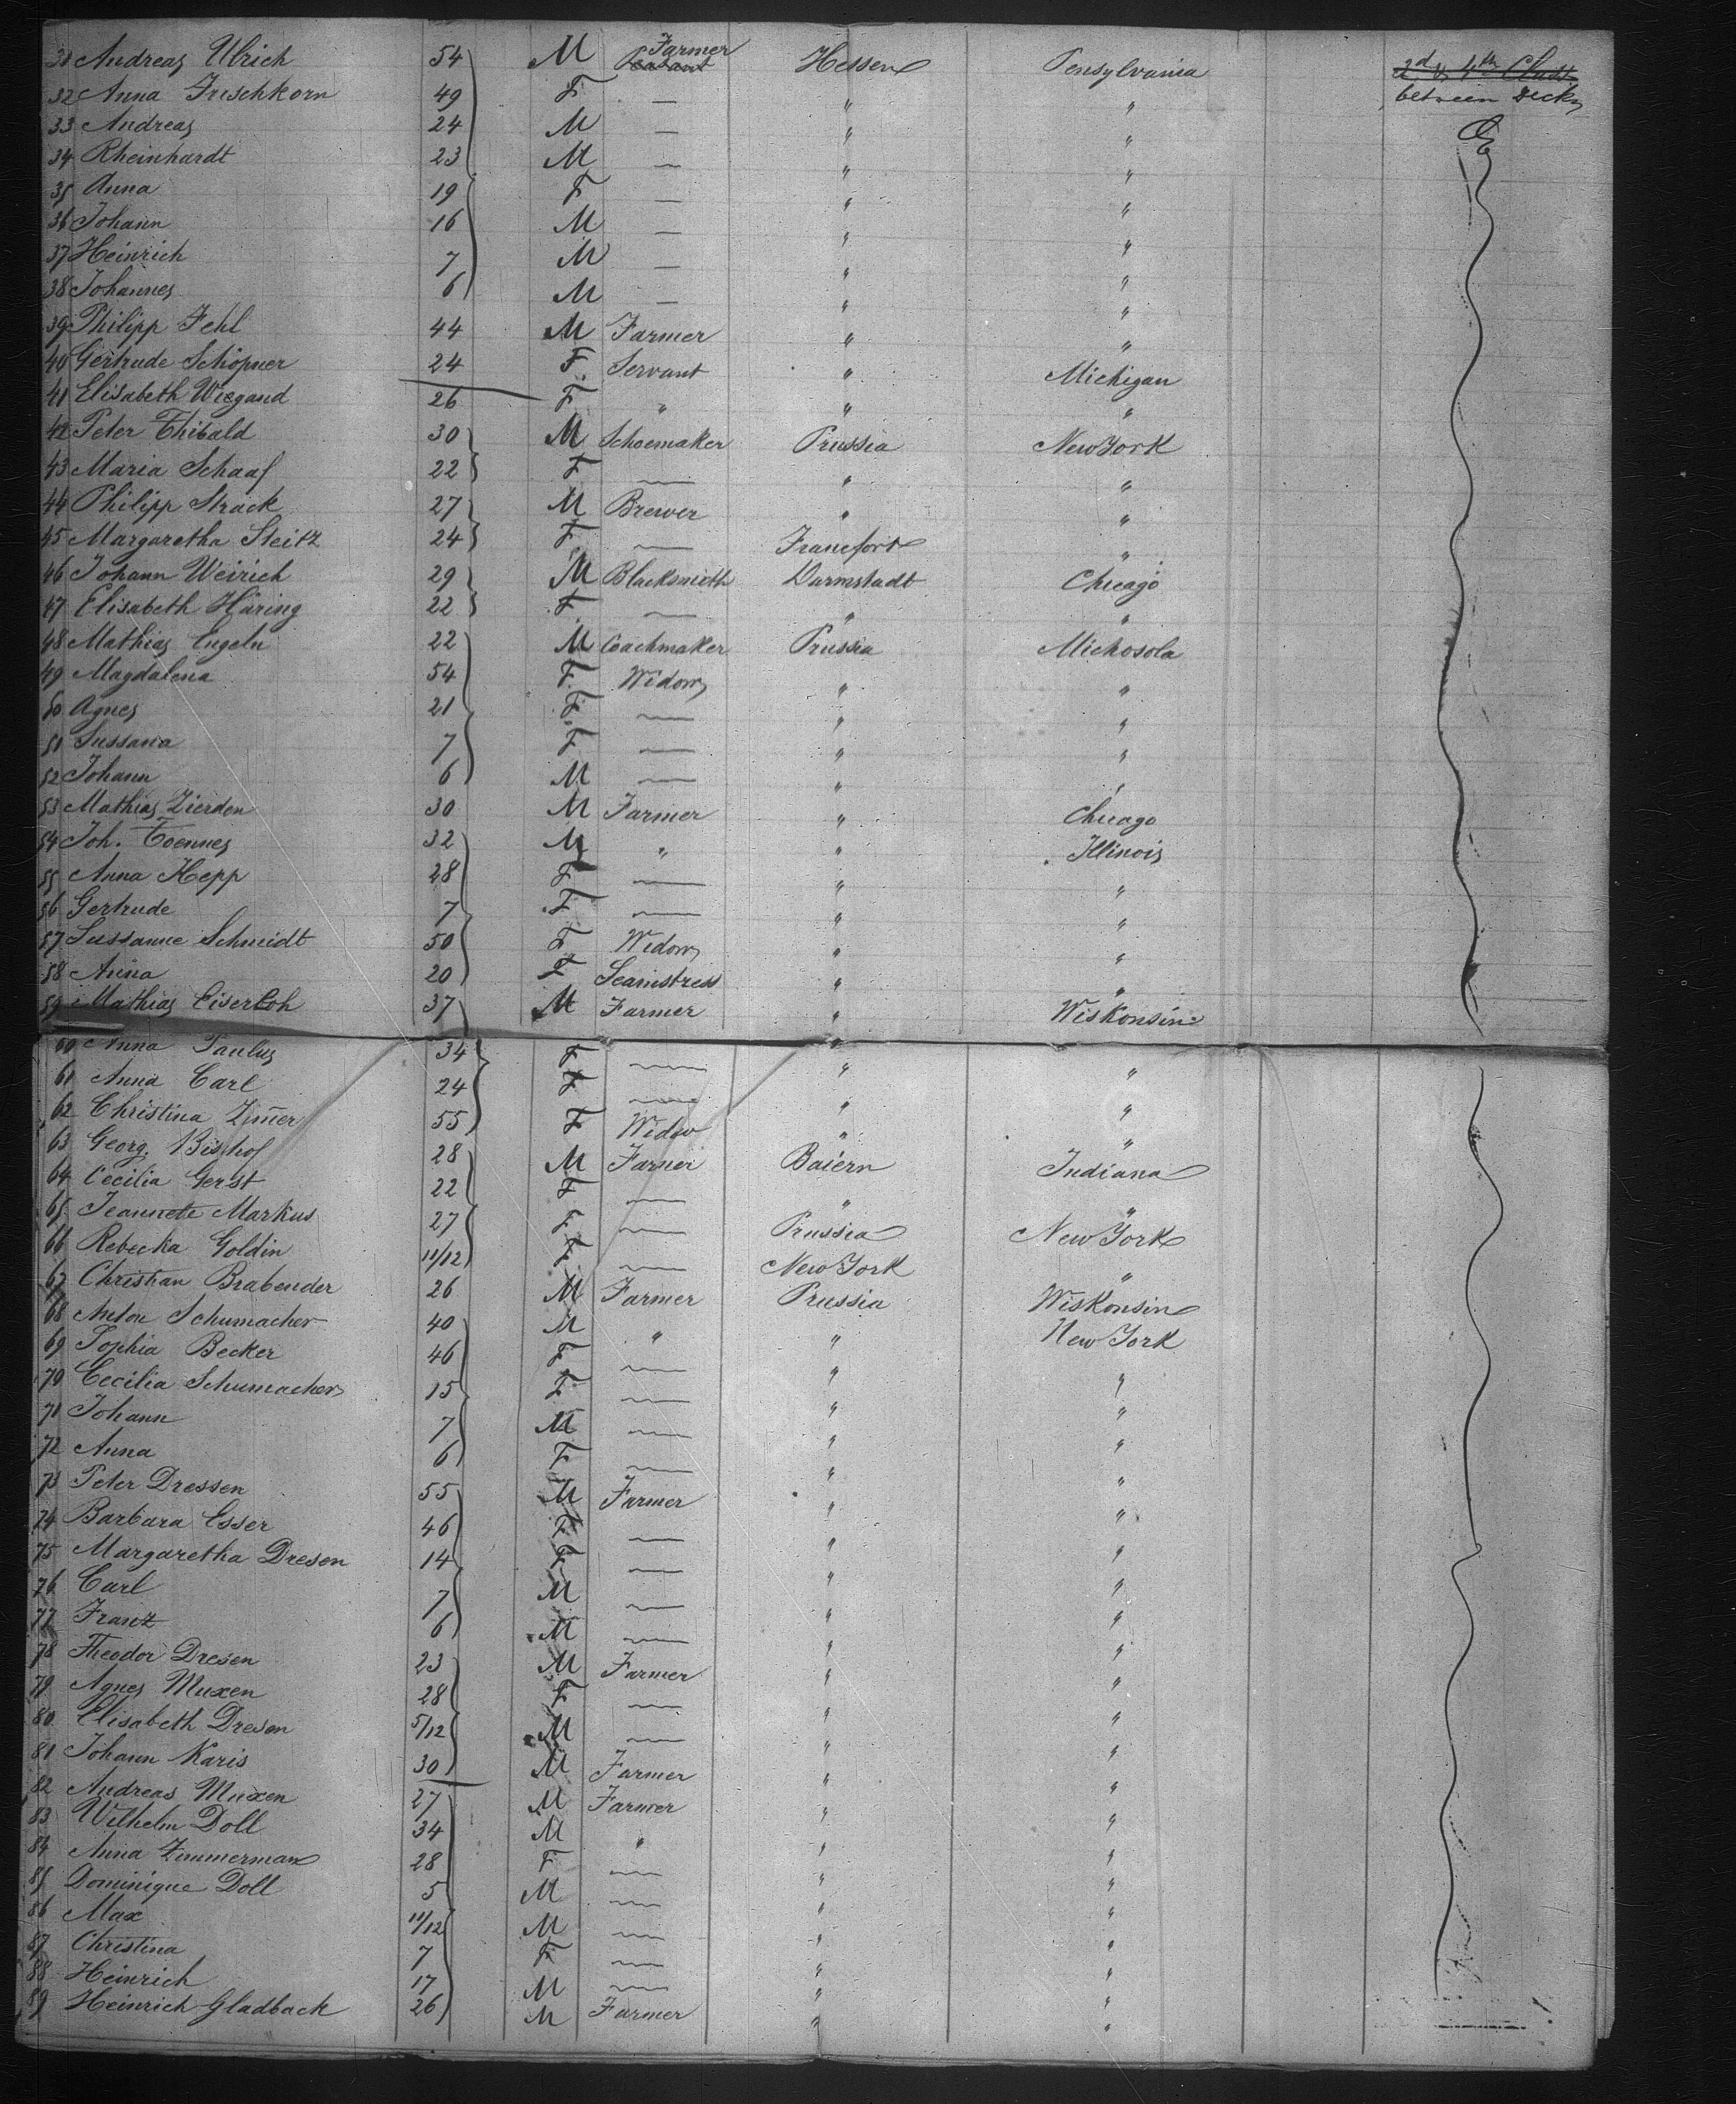 31 Andreas Ulrich 54 M Farmer Peasant Hessen Pensylvania 2d & 4th Class
32 Anna Frischkorn 49 F — " " between Decks
33 Andreas 24 M — " "
34 Rheinhardt 23 M — " "
35 Anna 19 F — " "
36 Johann 16 M — " "
37 Heinrich 7 M — " "
38 Johannes 6 M — " "
39 Philipp Fehl 44 M Farmer " "
40 Gertrude Schöpner 24 F Servant " Michigan
41 Elisabeth Wiegand 26 F " " "
42 Peter Thibald 30 M Schoemaker Prussia New York
43 Maria Schaaf 22 F — " "
44 Philipp Strack 27 M Brewer " "
45 Margaretha Steitz 24 F — Francfort "
46 Johann Weirich 29 M Blacksmith Darmstadt Chicago
47 Elisabeth Häring 22 F — " "
48 Mathias Engeln 22 M Coachmaker Prussia Michosola
49 Magdalena 54 F Widow " "
50 Agnes 21 F — " "
51 Sussana 7 F — " "
52 Johann 6 M — " "
53 Mathias Zierden 30 M Farmer " Chicago
54 Joh. Toennes 32 M " " Illinois
55 Anna Hepp 28 F — " "
56 Gertrude 7 F — " "
57 Sussanne Schmidt 50 F Widow " "
58 Anna 20 F Seamstress " "
59 Mathias Eiserloh 37 M Farmer " Wiskonsin
60 Anna Paulus 34 F — " "
61 Anna Carl 24 F — " "
62 Christina Zimer 55 F Widow " "
63 Georg Bischof 28 M Farmer Baiern Indiana
64 Cecilia Gerst 22 F — " "
65 Jeannete Markus 27 F — Prussia New York
66 Rebecka Goldin 11/12 F — New York "
67 Christian Brabender 26 M Farmer Prussia Wiskonsin
68 Anton Schumacher 40 M " " New York
69 Sophia Becker 46 F — " "
70 Cecilia Schumacher 15 F — " "
71 Johann 7 M — " "
72 Anna 6 F — " "
73 Peter Dressen 55 M Farmer " "
74 Barbara Esser 46 F — " "
75 Margaretha Dresen 14 F — " "
76 Carl 7 M — " "
77 Franz 6 M — " "
78 Theodor Dresen 23 M Farmer " "
79 Agnes Muxen 28 F — " "
80 Elisabeth Dresen 5/12 M — " "
81 Johann Karis 30 M Farmer " "
82 Andreas Muxen 27 M Farmer " "
83 Wilhelm Doll 34 M " " "
84 Anna Zimmerman 28 F — " "
85 Dominique Doll 5 M — " "
86 Max 11/12 M — " "
87 Christina 7 F — " "
88 Heinrich 17 M — " "
89 Heinrich Gladback 26 M Farmer " "